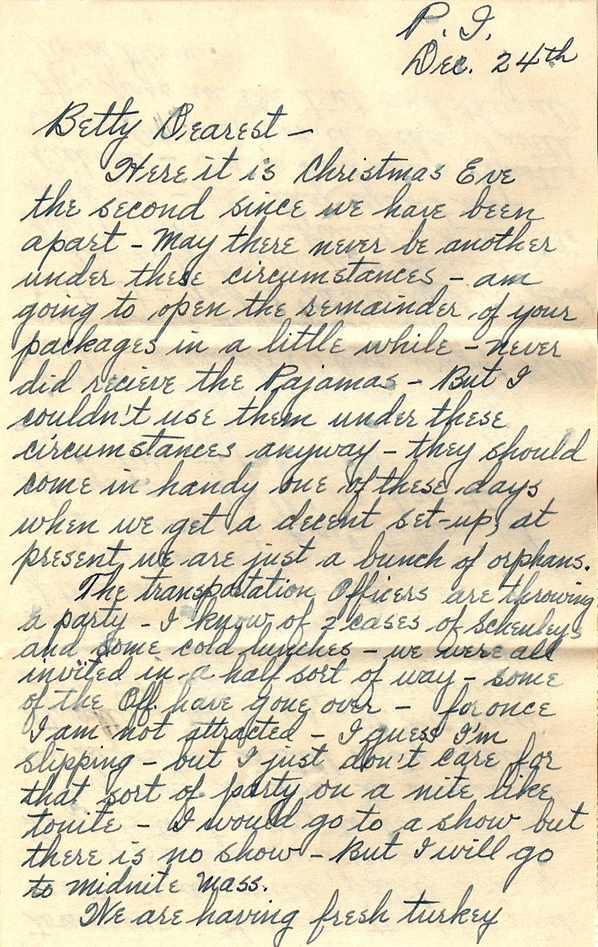 P. I.
Dec. 24th
Betty Dearest -
Here it is Christmas Eve
the second since we have been
apart - May there never be another
under these circumstances - am
going to open the remainder of your
packages in a little while - never
did recieve the Pajamas - But I
couldn't use them under these
circumstances anyway - they should
come in handy one of these days
when we get a decent set-up, at
present we are just a bunch of orphans.
The transportation Officers are throwing
a party - I know of 2 cases of Schenleys
and some cold lunches - we were all
invited in a half sort of way - some
of the Off. have gone over - for once
I am not attracted - I guess I'm
slipping - but I just don't care for
that sort of party on a nite like
tonite - I would go to a show but
there is no show - But I will go
to midnite Mass.
We are having fresh turkey